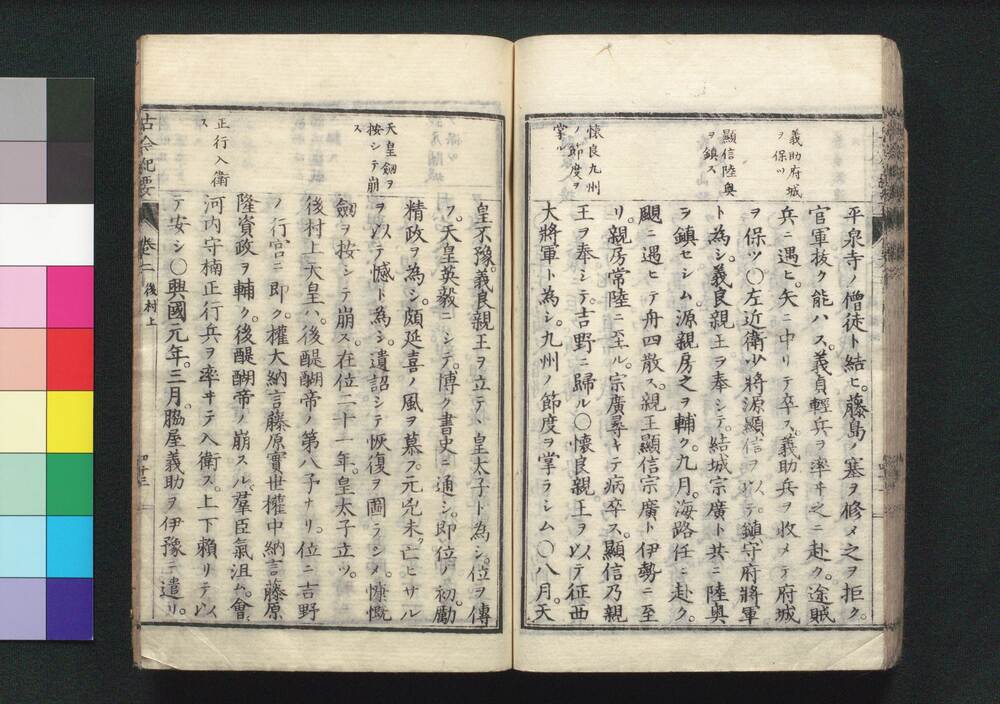 義助府城
ヲ保ツ
顯信陸奥
ヲ鎮ス
懐良九州
ノ節度ヲ
掌ル
平泉寺ノ僧徒ト結ヒ。藤島ノ塞ヲ修メ之ヲ拒ク。
官軍抜ク能ハス。義貞輕兵ヲ率ヰ之ニ赴ク。途賊
兵ニ遇ヒ。矢ニ中リテ卒ス。義助兵ヲ收メテ府城
ヲ保ツ〇左近衛少將源顯信ヲ以テ。鎮守府將軍
ト為シ。義良親王ヲ奉シテ。結城宗廣ト共ニ陸奥
ヲ鎮セシム。源親房之ヲ輔ク。九月。海路任ニ赴ク。
颶ニ遇ヒテ舟四散ス。親王顯信宗廣ト伊勢ニ至
リ。親房常陸ニ至ル。宗廣尋キテ病卒ス。顯信乃親
王ヲ奉シテ。吉野ニ歸ル〇懐良親王ヲ以テ征西
大將軍ト為シ。九州ノ節度ヲ掌ラシム〇八月。天
天皇劔ヲ
按シテ崩
ス
正行入衛
ス
皇不豫。義良親王ヲ立テヽ皇太子ト為シ。位ヲ傳
フ。天皇英毅ニシテ。博ク書史ニ通シ。即位ノ初。勵
精政ヲ為シ。頗延喜ノ風ヲ慕フ。元兇未タ亡ヒサル
ヲ以テ憾ト為シ。遺詔シテ恢復ヲ圖ラシメ。慷慨
劔ヲ按シテ崩ス。在位二十一年。皇太子立ツ。
後村上天皇ハ。後醍醐帝ノ第八子ナリ。位ニ吉野
ノ行宮ニ即ク。權大納言藤原實世權中納言藤原
隆資政ヲ輔ク。後醍醐帝ノ崩スル。羣臣氣沮ム。會
河内守楠正行兵ヲ率ヰテ入衛ス。上下賴リテ以
テ安シ〇興國元年。三月。脇屋義助ヲ伊豫ニ遣リ。
古今紀要 卷二 後村上 四十三